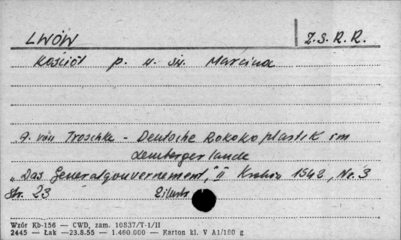 LWÓW Z.S.R.R.
Kościół p. w. św. Marcina
A. von Troschke - Deutsche Rokokoplastik im
Lemberger lande
"Das Generalgouvernement," II Kraków 1942, No. 3
Str. 23 2 ilustr
Wzór Kb-156 — CWD, zam. 10837/T-1/II
2445 — Łak —23.8.55 — 1.460.000 — Karton kl. V A1/180 g